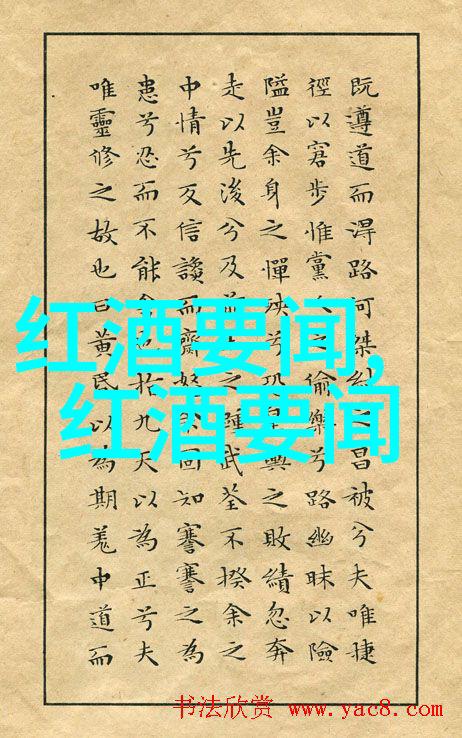 既遵道而淂路何桀紂之昌被兮夫唯捷
徑以窘步惟黨人之偷樂兮路幽昧以險
隘豈余身之憚殃兮恐皇輿之敗績忽奔
走以先後兮及前王之踵武荃不揆余之
中情兮反信讒而齌怒余固知謇謇之為
患兮忍而不能舍也指九天以為正兮夫
唯靈修之故也曰黃民以為期羌中道而
红酒要闻,
红酒要闻
书法欣赏 www.yac8.com